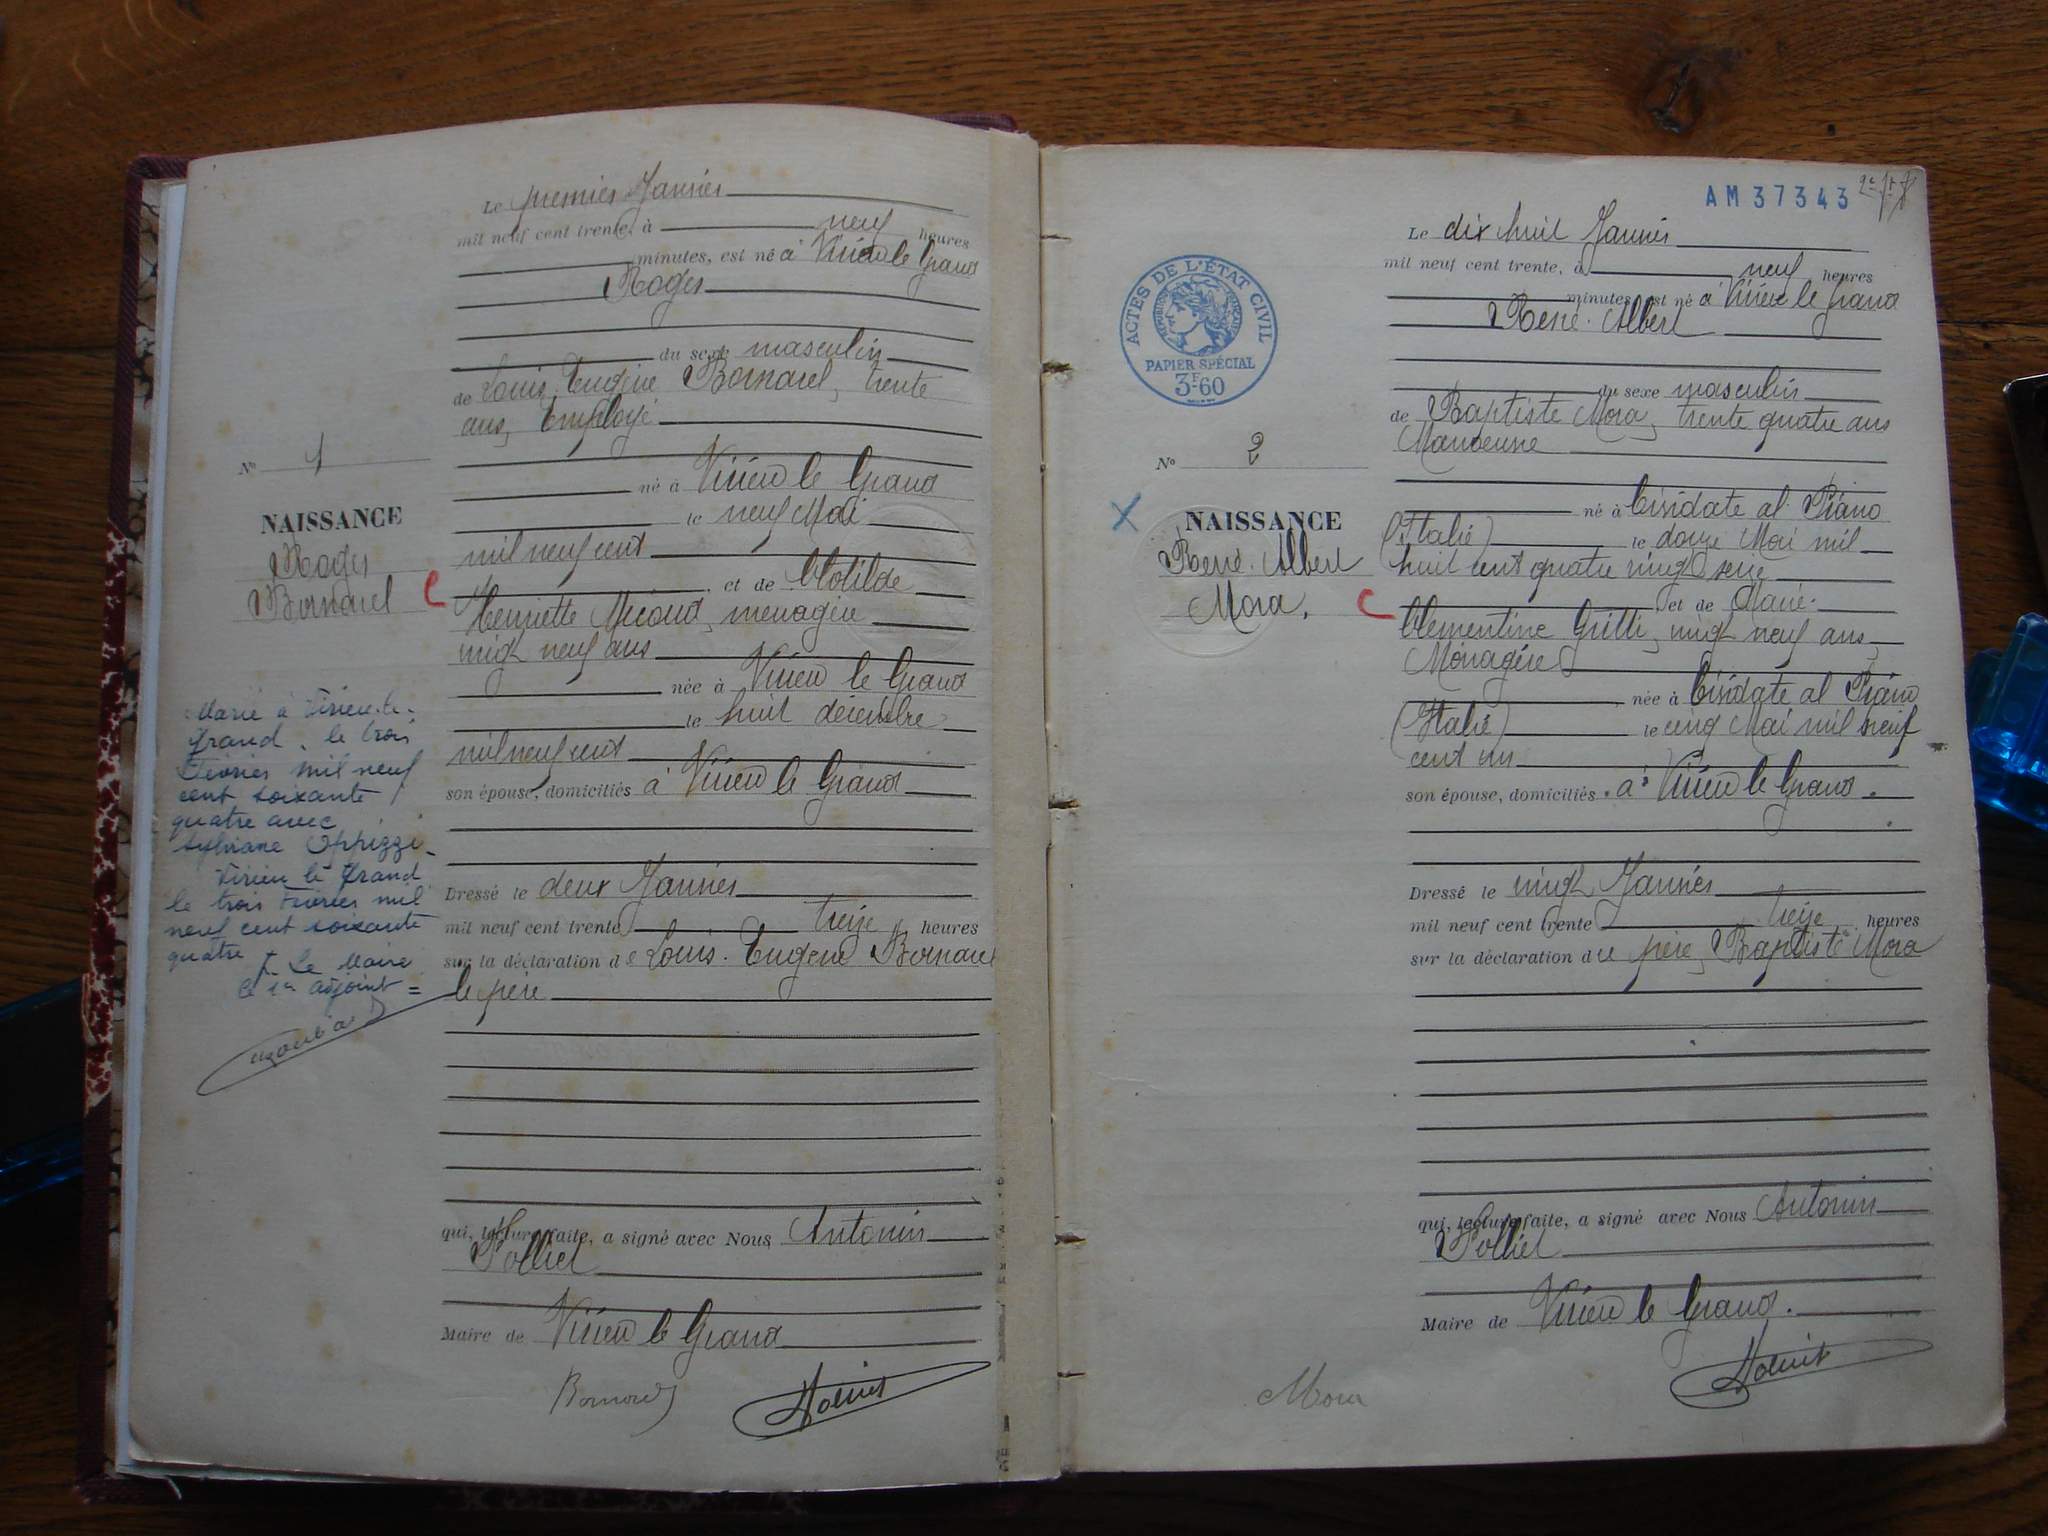 Le premier Janvier
mil neuf cent trente, à neuf heures
minutes, est né à Virieu le Grand
Roger
du sexe masculin
de Louis Eugène Bornarel, trente
ans, Employé
né à Virieu le Grand
le neuf Mai
mil neuf cent
et de Clotilde
Henriette Micoud, menagère
vingt neuf ans
née à Virieu le Grand
le huit décembre
mil neuf cent
son épouse, domiciliés à Virieu le Grand
Dressé le deux Janvier
mil neuf cent trente treize heures
sur la déclaration de Louis. Eugène Bornarel
le père
qui, lecture faite, a signé avec Nous Antonin
Polliet
Maire de Virieu le Grand
N° 1
NAISSANCE
Roger
Bornarel
C
Marié à Virieu-le-
Grand, le trois
Février mil neuf
cent soixante
quatre avec
Sylviane Oppizzi-
Virieu le Grand
le trois Février mil
neuf cent soixante
quatre
Le Maire
adjoint =
AM37343
Le dix huit Janvier
mil neuf cent trente, à neuf heures
minutes est né à Virieu le Grand
René. Albert
du sexe masculin
de Baptiste Mora, trente quatre ans
Manoeuvre
né à Cisidate al Piano
(Italie) le douze Mai mil
huit cent quatre vingt seize
et de Marie.
Clementine Gritti, vingt neuf ans,
Ménagère
née à Cisidate al Piano
(Italie) le cinq Mai mil neuf
cent un
son épouse, domiciliés à Virieu le Grand.
Dressé le vingt Janvier
mil neuf cent trente treize heures
sur la déclaration du père, Baptiste Mora
qui, lecture faite, a signé avec Nous Antonin
Polliet
Maire de Virieu le Grand.
Mora
ACTES DE L'ÉTAT CIVIL
RÉPUBLIQUE FRANÇAISE
PAPIER SPÉCIAL
3F.60
N° 2
X
NAISSANCE
René. Albert
Mora.
C